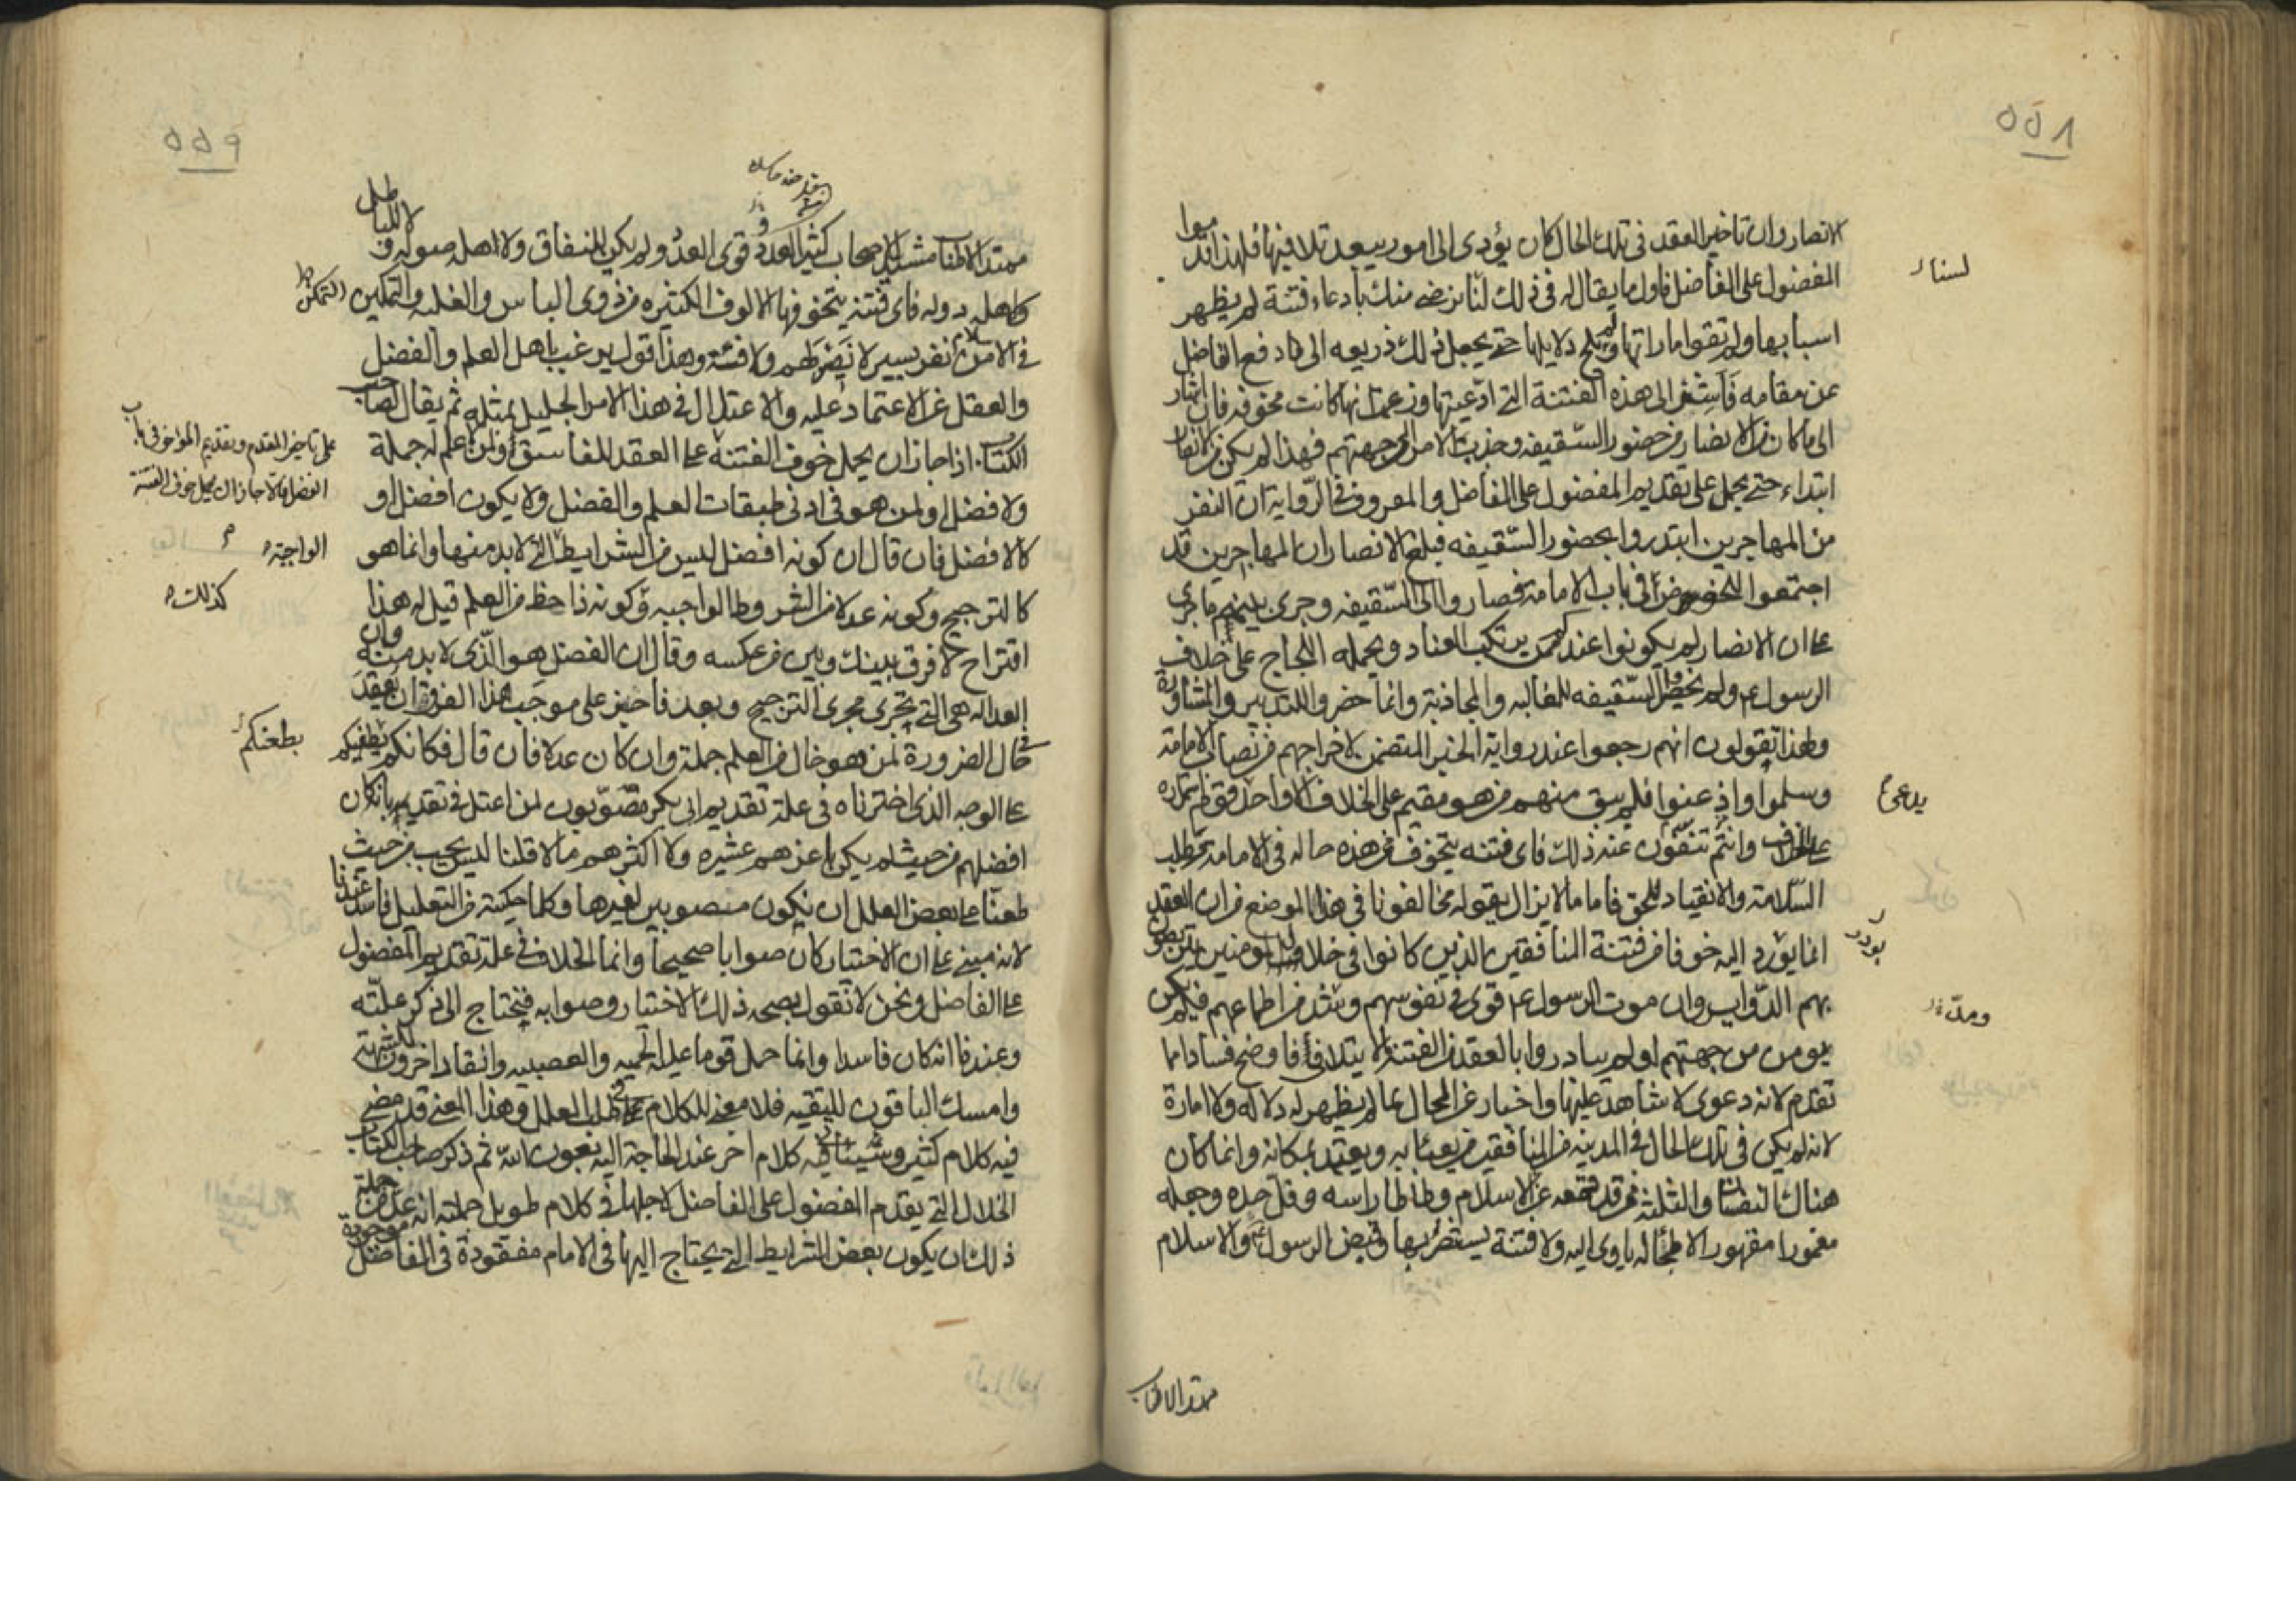 ٥٥٨
الانصار وان تاخير العقد فى تلك الحال كان يؤدى الى امور يبعد تلافيها فلهذا قدموا
المفضول على الفاضل فاول ما يقال له فى ذلك لسنا نرضى منك بادعاء فتنة لم يظهر
لسنا
اسبابها ولم تقو اماراتها ولم تلح دلايلها حتى يجعل ذلك ذريعه الى دفع الفاضل
عن مقامه فاشر الى هذه الفتنة التى ادعيتها وزعمت انها كانت مخوفه فان اشار
الى ما كان من الانصار من حضور السقيفه وجذب الامر الى جهتهم فهذا لم يكن من الانصار
ابتداء حتى يحمل على تقديم المفضول على الفاضل والمعروف فى الرواية ان النفر
من المهاجرين ابتدروا بحضور السقيفه فبلغ الانصار ان المهاجرين قد
اجتمعوا للخوض فى باب الامامة فصاروا الى السقيفه وجرى بينهم ما جرى
على ان الانصار لم يكونوا عندكم ممن يرتكب العناد ويحمله اللجاج على خلاف
الرسول ع ولم يحضروا السقيفه للمغالبه والمجاذبة وانما حضروا للتدبير والمشاورة
ولهذا تقولون انهم رجعوا عند رواية الخبر المتضمن لاخراجهم من الامامة
وسلموا واذعنوا فلم يبق منهم من هو مقيم على الخلاف الا واحد
يدعى
على الخلاف وانتم تنفون عنه ذلك فاى فتنه يتخوف ممن هذه حاله فى الامامة وطلب
السلامة والانقياد للحق فاما ما لا يزال يقوله مخالفونا فى هذا الموضع من ان العقد
انما بودر اليه خوفا من فتنة المنافقين الذين كانوا فى خلاف المومنين يتربصون
بودر
بهم الدواير وان موت الرسول ع قوى فى نفوسهم من اطماعهم فلم يكن
ومدّ
يومن من جهتهم لو لم يبادروا بالعقد من الفتنة ما لا يتلافى فاوضح فسادا مما
تقدم لانه دعوى لا شاهد عليها واخبار عن المحال بما لم يظهر له دلاله ولا امارة
لانه لم يكن فى تلك الحال فى المدينه من المنافقين من يعبا به ويعتد بمكانه وانما كان
هناك النفسان والثلثه ممن قد قمعه عز الاسلام وطاطا راسه وفل حده وجعله
مغمورا مقهورا لا ملجا له ياوى اليه ولا فتنة يستضر بها وقبض الرسول ع والاسلام
ممتد الاطناب
٥٥٩
ممتد الاطناب مشيد الاصحاب كثير العدد قوى العدد ولم يكن للنفاق ولا اهله صوله و لا للباطل
واهله دوله فاى فتنة يتخوفها الالوف الكثيره من ذوى الباس والغلبه والتمكين
التمكن
فى الامر من نفر يسير لا نصر لهم ولا فئة وهذا قول يرغب باهل العلم والفضل
والعقل عن الاعتماد عليه والاعتلال فى هذا الامر الجليل بمثله ثم يقال لصاحب
الكتاب اذا جاز ان يحمل خوف الفتنة على العقد للفاسق او لمن لا علم له جملة
على تاخير المقدم وتقديم المؤخر فى باب
الفضل فالا جاز ان يحمل خوف الفتنة
ولا فضل او لمن هو فى ادنى طبقات العلم والفضل ولا يكون افضل او
كالافضل فان قال ان كونه افضل ليس من الشرايط التى لا بد منها وانما هو
الواجبة
كالترجيح وكونه عدلا من الشروط الواجبه وكونه ذا حظ من العلم قيل له هذا
كذلك
اقتراح لا فرق بينك وبين من عكسه وقال ان الفضل هو الذى لا بد منه وان
العداله هى التى تجرى مجرى الترجيح وبعد فاجيز على موجب هذا الفرق ان يعقد
فى حال الضرورة لمن هو خال من العلم جملة وان كان عدلا فان قال فكانكم
بطعنكم
على الوجه الذى اخترناه فى علة تقديم ابى بكر تصوبون لمن اعتل فى تقديمه بان كان
افضلهم من حيث لم يكن اعزهم عشيره ولا اكثرهم مالا قلنا ليس يجب من حيث
طعنا على بعض العلل ان نكون منصوبين لغيرها وكلما حكيته من التعليل فاسد عندنا
لانه مبنى على ان الاختيار كان صوابا صحيحا وانما الخلاف فى علة تقديم المفضول
على الفاضل ونحن لا نقول بصحه ذلك الاختيار وصوابه فنحتاج الى ذكر علته
وعندنا انه كان فاسدا وانما حمل قوما عليه الحميه والعصبيه وانقاد اخرون للشبهة
وامسك الباقون للتقيه فلا معنى للكلام على طلب العلل وهذا المعنى قد مضى
فيه كلام كثير وسياتى فيه كلام اخر عند الحاجة اليه بعون الله ثم ذكر صاحب الكتاب
الخلال التى يقدم المفضول على الفاضل لاجلها فى كلام طويل جملته انه عد من جملة
ذلك ان يكون بعض الشرايط التى يحتاج اليها فى الامام مفقودة فى الفاضل موجودة